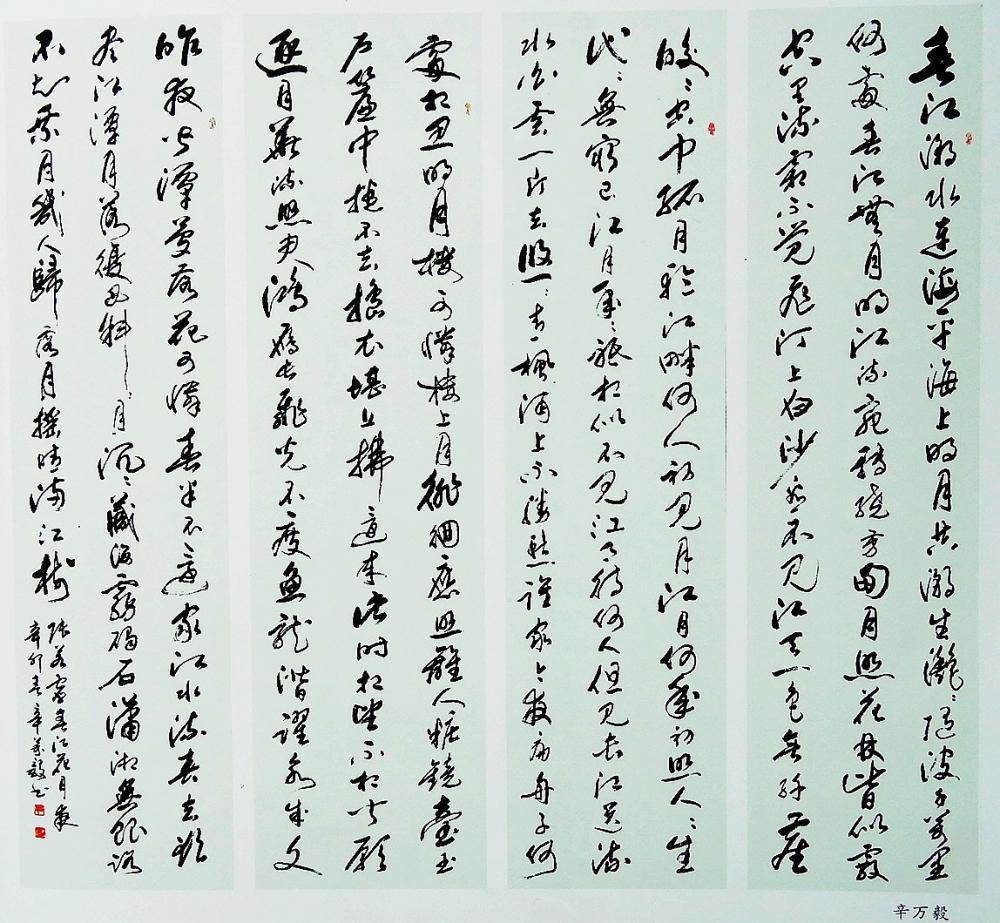 春江潮水連海平海上明月共潮生灩〻隨波千萬里
何處春江無月明江流宛轉繞芳甸月照花林皆似霰
空里流霜不觉飛汀上白沙看不见江天一色無纤塵
皎〻空中孤月轮江畔何人初见月江月何年初照人〻生
代〻無窮已江月年〻祗相似不见江月待何人但见長江送流
水白雲一片去悠〻青楓浦上不勝愁誰家今夜扁舟子何
處相思明月樓可憐樓上月徘徊應照離人粧鏡臺玉
户簾中捲不去搗衣砧上拂還来此时相望不相闻願
逐月華流照君鴻雁長飛光不度魚龍潛躍水成文
昨夜闲潭夢落花可憐春半不還家江水流春去欲
盡江潭月落復西斜〻月沉〻藏海霧碣石瀟湘無限路
不知乘月幾人歸落月搖情滿江樹
張若虚春江花月夜
辛卯春辛萬毅书
辛万毅